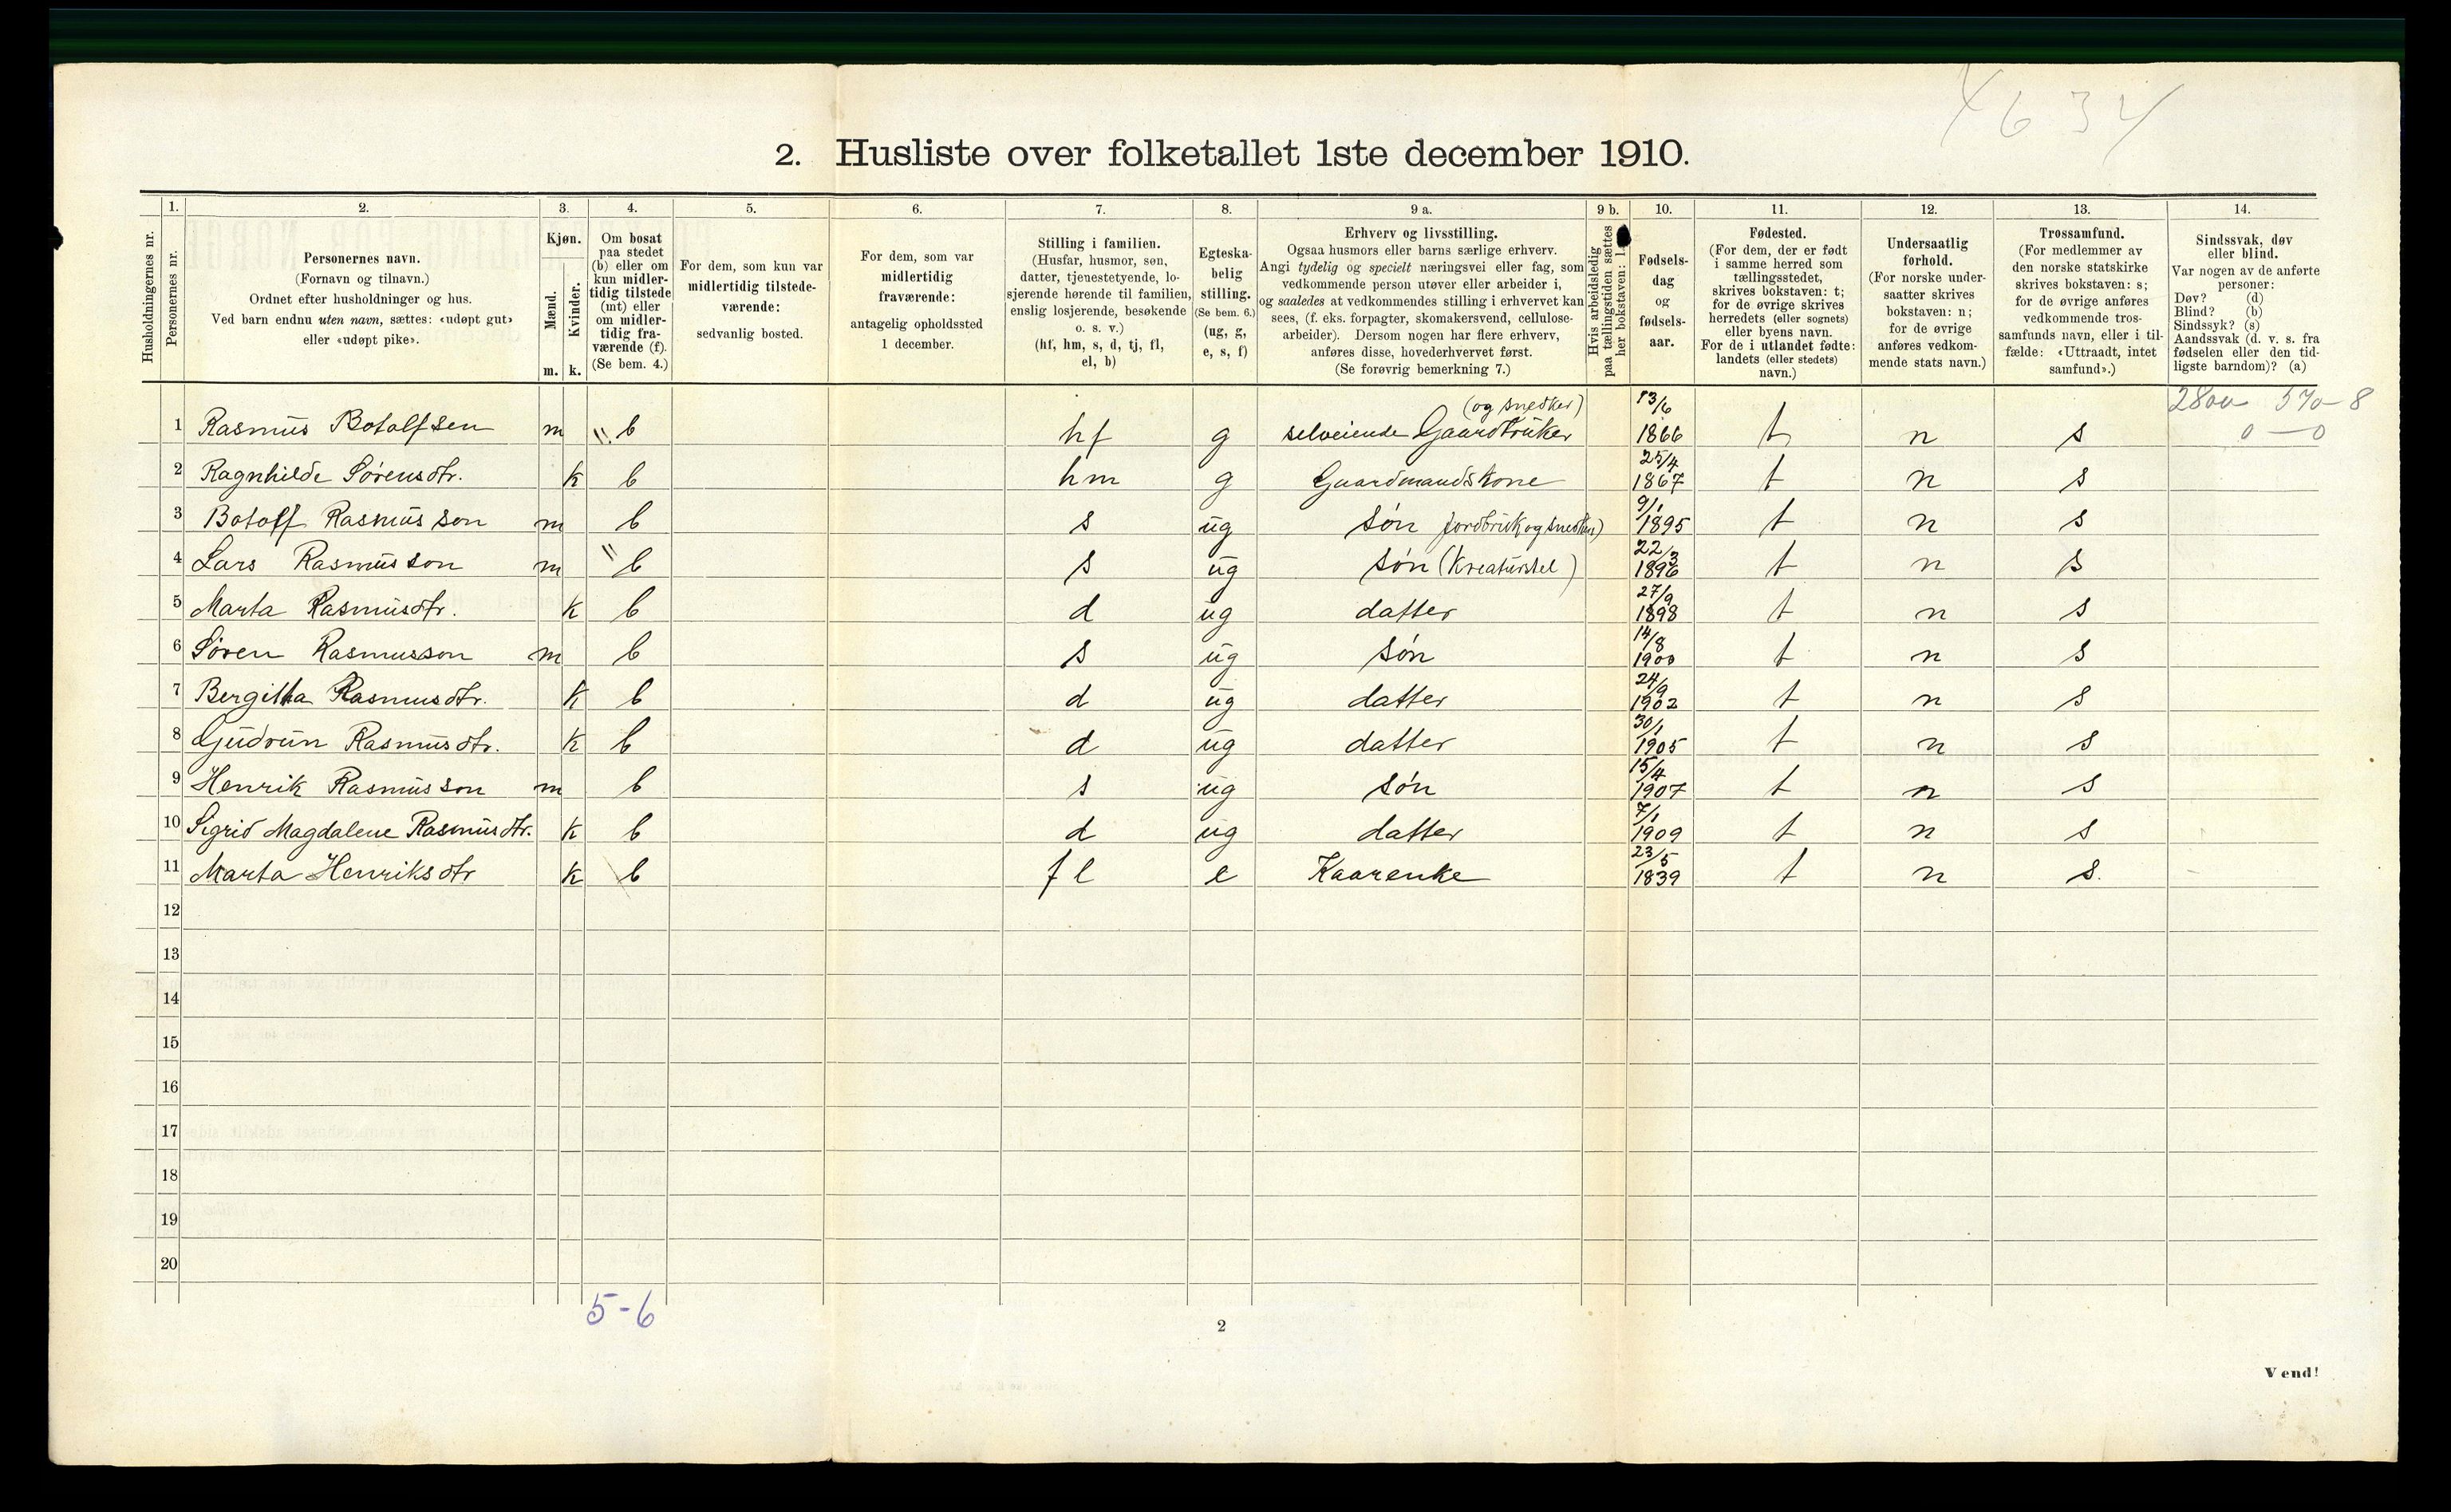 4634
2. Husliste over folketallet 1ste december 1910.
Husholdningernes nr.
1. Personernes nr.
2. Personernes navn. (Fornavn og tilnavn.) Ordnet efter husholdninger og hus. Ved barn endnu uten navn, sættes: «udøpt gut» eller «udøpt pike».
3. Kjøn. Mænd. m. Kvinder. k.
4. Om bosat paa stedet (b) eller om kun midlertidig tilstede (mt) eller om midlertidig fraværende (f). (Se bem. 4.)
5. For dem, som kun var midlertidig tilstedeværende: sedvanlig bosted.
6. For dem, som var midlertidig fraværende: antagelig opholdssted 1 december.
7. Stilling i familien. (Husfar, husmor, søn, datter, tjenestetyende, losjerende hørende til familien, enslig losjerende, besøkende o. s. v.) (hf, hm, s, d, tj, fl, el, b)
8. Egteskabelig stilling. (Se bem. 6.) (ug, g, e, s, f)
9 a. Erhverv og livsstilling. Ogsaa husmors eller barns særlige erhverv. Angi tydelig og specielt næringsvei eller fag, som vedkommende person utøver eller arbeider i, og saaledes at vedkommendes stilling i erhvervet kan sees, (f. eks. forpagter, skomakersvend, cellulosearbeider). Dersom nogen har flere erhverv, anføres disse, hovederhvervet først. (Se forøvrig bemerkning 7.)
9 b. Hvis arbeidsledig paa tællingstiden sættes her bokstaven: l.
10. Fødselsdag og fødselsaar.
11. Fødested. (For dem, der er født i samme herred som tællingsstedet, skrives bokstaven: t; for de øvrige skrives herredets (eller sognets) eller byens navn. For de i utlandet fødte: landets (eller stedets) navn.)
12. Undersaatlig forhold. (For norske undersaatter skrives bokstaven: n; for de øvrige anføres vedkommende stats navn.)
13. Trossamfund. (For medlemmer av den norske statskirke skrives bokstaven: s; for de øvrige anføres vedkommende trossamfunds navn, eller i tilfælde: «Uttraadt, intet samfund».)
14. Sindssvak, døv eller blind. Var nogen av de anførte personer: Døv? (d) Blind? (b) Sindssyk? (s) Aandssvak (d. v. s. fra fødselen eller den tidligste barndom)? (a)
2800 570-8
0 — 0
1 Rasmus Botolfsen m b hf g selveiende Gaardbruker (og snedker) 13/6 1866 t n s
2 Ragnhilde Sørensdtr. k b hm g Gaardmandskone 25/4 1867 t n s
3 Botolf Rasmusson m b s ug søn jordbruk og snedker) 9/1 1895 t n s
4 Lars Rasmusson m b s ug søn (Kreaturstel) 22/3 1896 t n s
5 Marta Rasmusdtr. k b d ug datter 27/9 1898 t n s
6 Søren Rasmusson m b s ug søn 14/8 1900 t n s
7 Bergitta Rasmusdtr. k b d ug datter 24/9 1902 t n s
8 Gudrun Rasmusdtr. k b d ug datter 30/1 1905 t n s
9 Henrik Rasmusson m b s ug søn 15/4 1907 t n s
10 Sigrid Magdalene Rasmusdtr. k b d ug datter 7/1 1909 t n s
11 Marta Henriksdtr k b fl e Kaarenke 23/5 1839 t n s.
12
13
14
15
16
17
18
19
20
5-6
2
Vend!